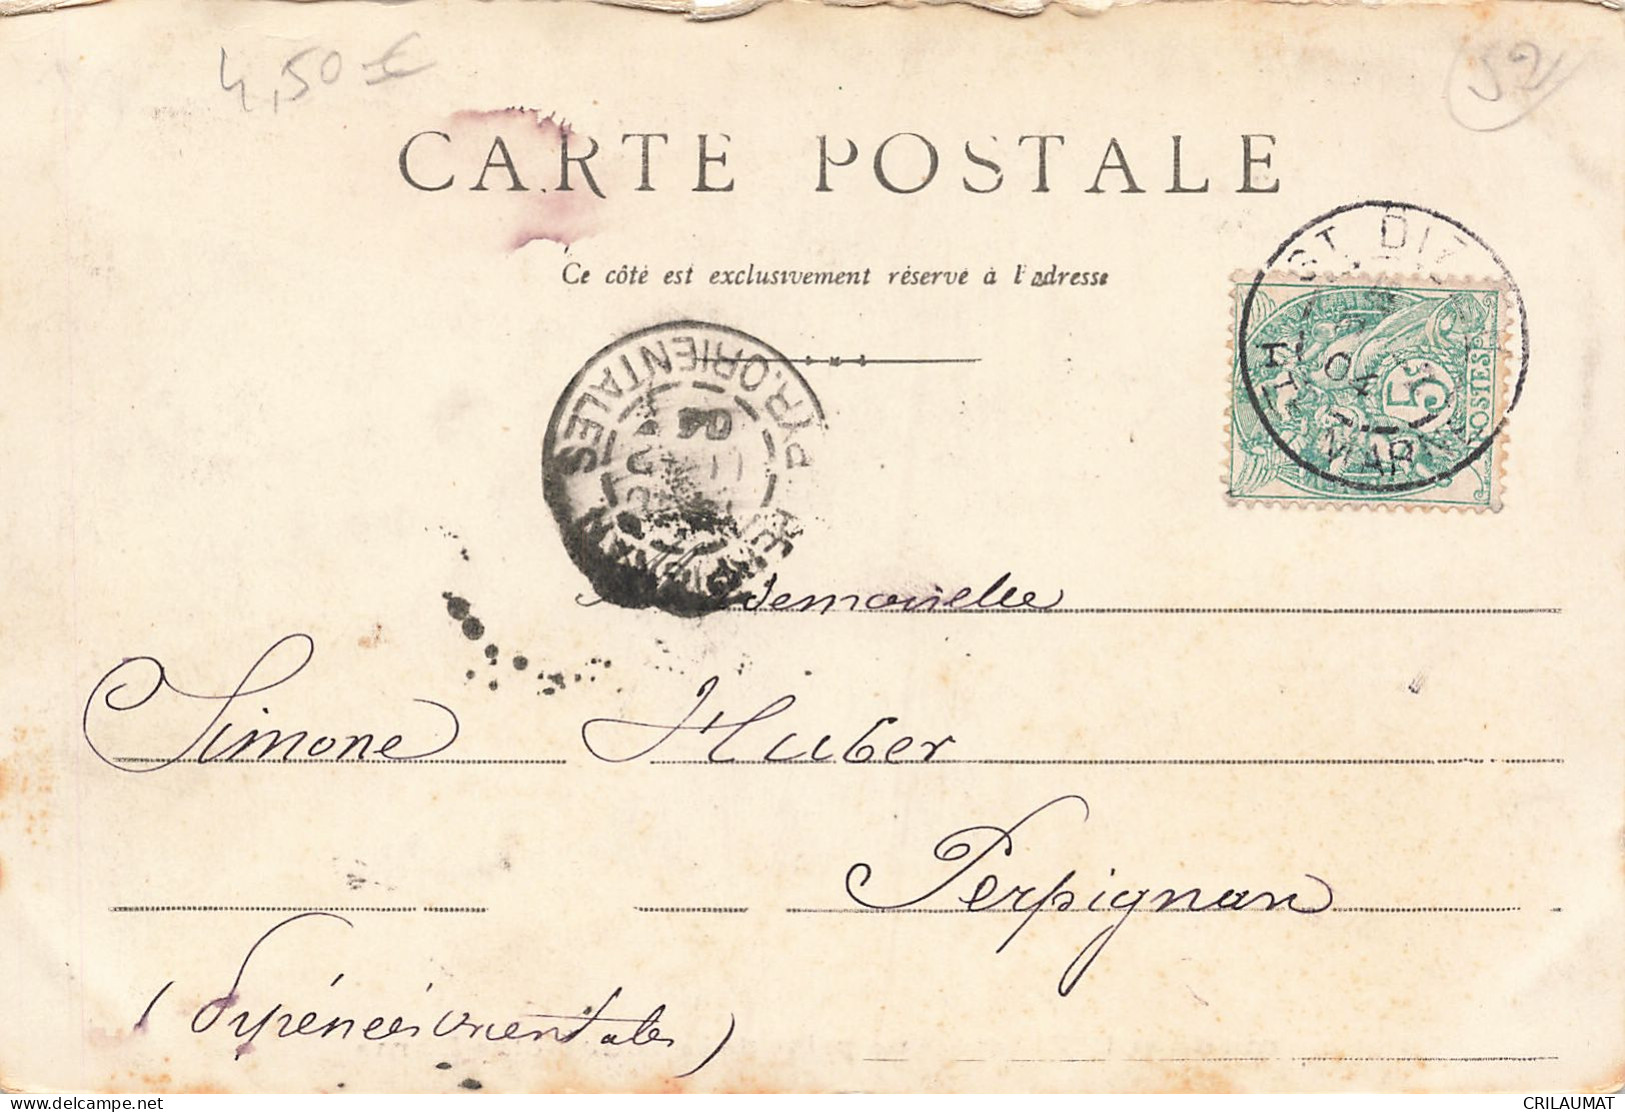 4,50 €
52
CARTE POSTALE
Ce côté est exclusivement réservé à l'adresse
ST DIZ
04
HTE MARNE
5
POSTES
PYR. ORIENTALES
04
PERPIGNAN
demoiselle
Simone Huber
Perpignan
(Pyrénées Orientales)
CRILAUMAT
delcampe.net